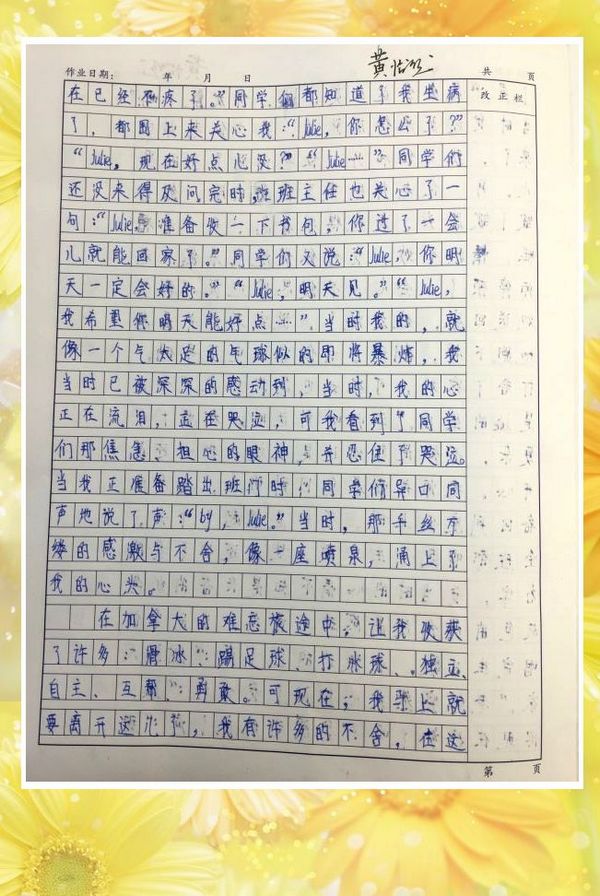 作业日期： 年 月 日 黄 共 页
在已经不疼了。”同学们都知道了我生病 改正栏
了，都围上来关心我：“Julie，你怎么了？”
“Julie，现在好点儿没？”“Julie……”同学们
还没来得及问完时，班主任也关心了一
句：“Julie，准备收一下书包，你过了一会
儿就能回家了。”同学们又说：“Julie，你明
天一定会好的。”“Julie，明天见。”“Julie，
我希望你明天能好点……”当时我的，就
像一个气太足的气球似的即将暴炸，我
当时已被深深的感动到，当时，我的心
正在流泪，在哭泣，可我看到了同学
们那焦急、担心的眼神，忍住了哭泣。
当我正准备踏出班门时，同学们异口同
声地说了声：“by，Julie。”当时，那千丝万
缕的感激与不舍，像一座喷泉，涌上了
我的心头。
在加拿大的难忘旅途中，让我收获
了许多：滑冰、踢足球、打冰球、独立、
自主、互帮、勇敢。可现在，我马上就
要离开这儿，我有许多的不舍，在这
第 页